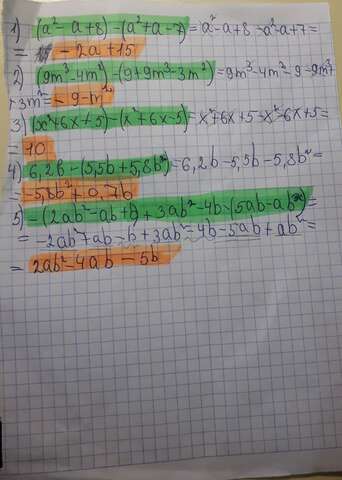 1) (a²-a+8)-(a²+a-7)=a²-a+8-a²-a+7=
= -2a+15
2) (9m³-4m²)-(9+9m³-3m²)=9m³-4m²-9-9m³
+3m²=-9-m²
3) (x²+6x+5)-(x²+6x-5)=x²+6x+5-x²-6x+5=
=10
4) 6,2b-(5,5b+5,8b²)=6,2b-5,5b-5,8b²=
=-5,8b²+0,7b
5) -(2ab²-ab+b)+3ab²-4b-(5ab-ab²)=
= -2ab²+ab-b+3ab²-4b-5ab+ab²=
= 2ab²-4ab-5b